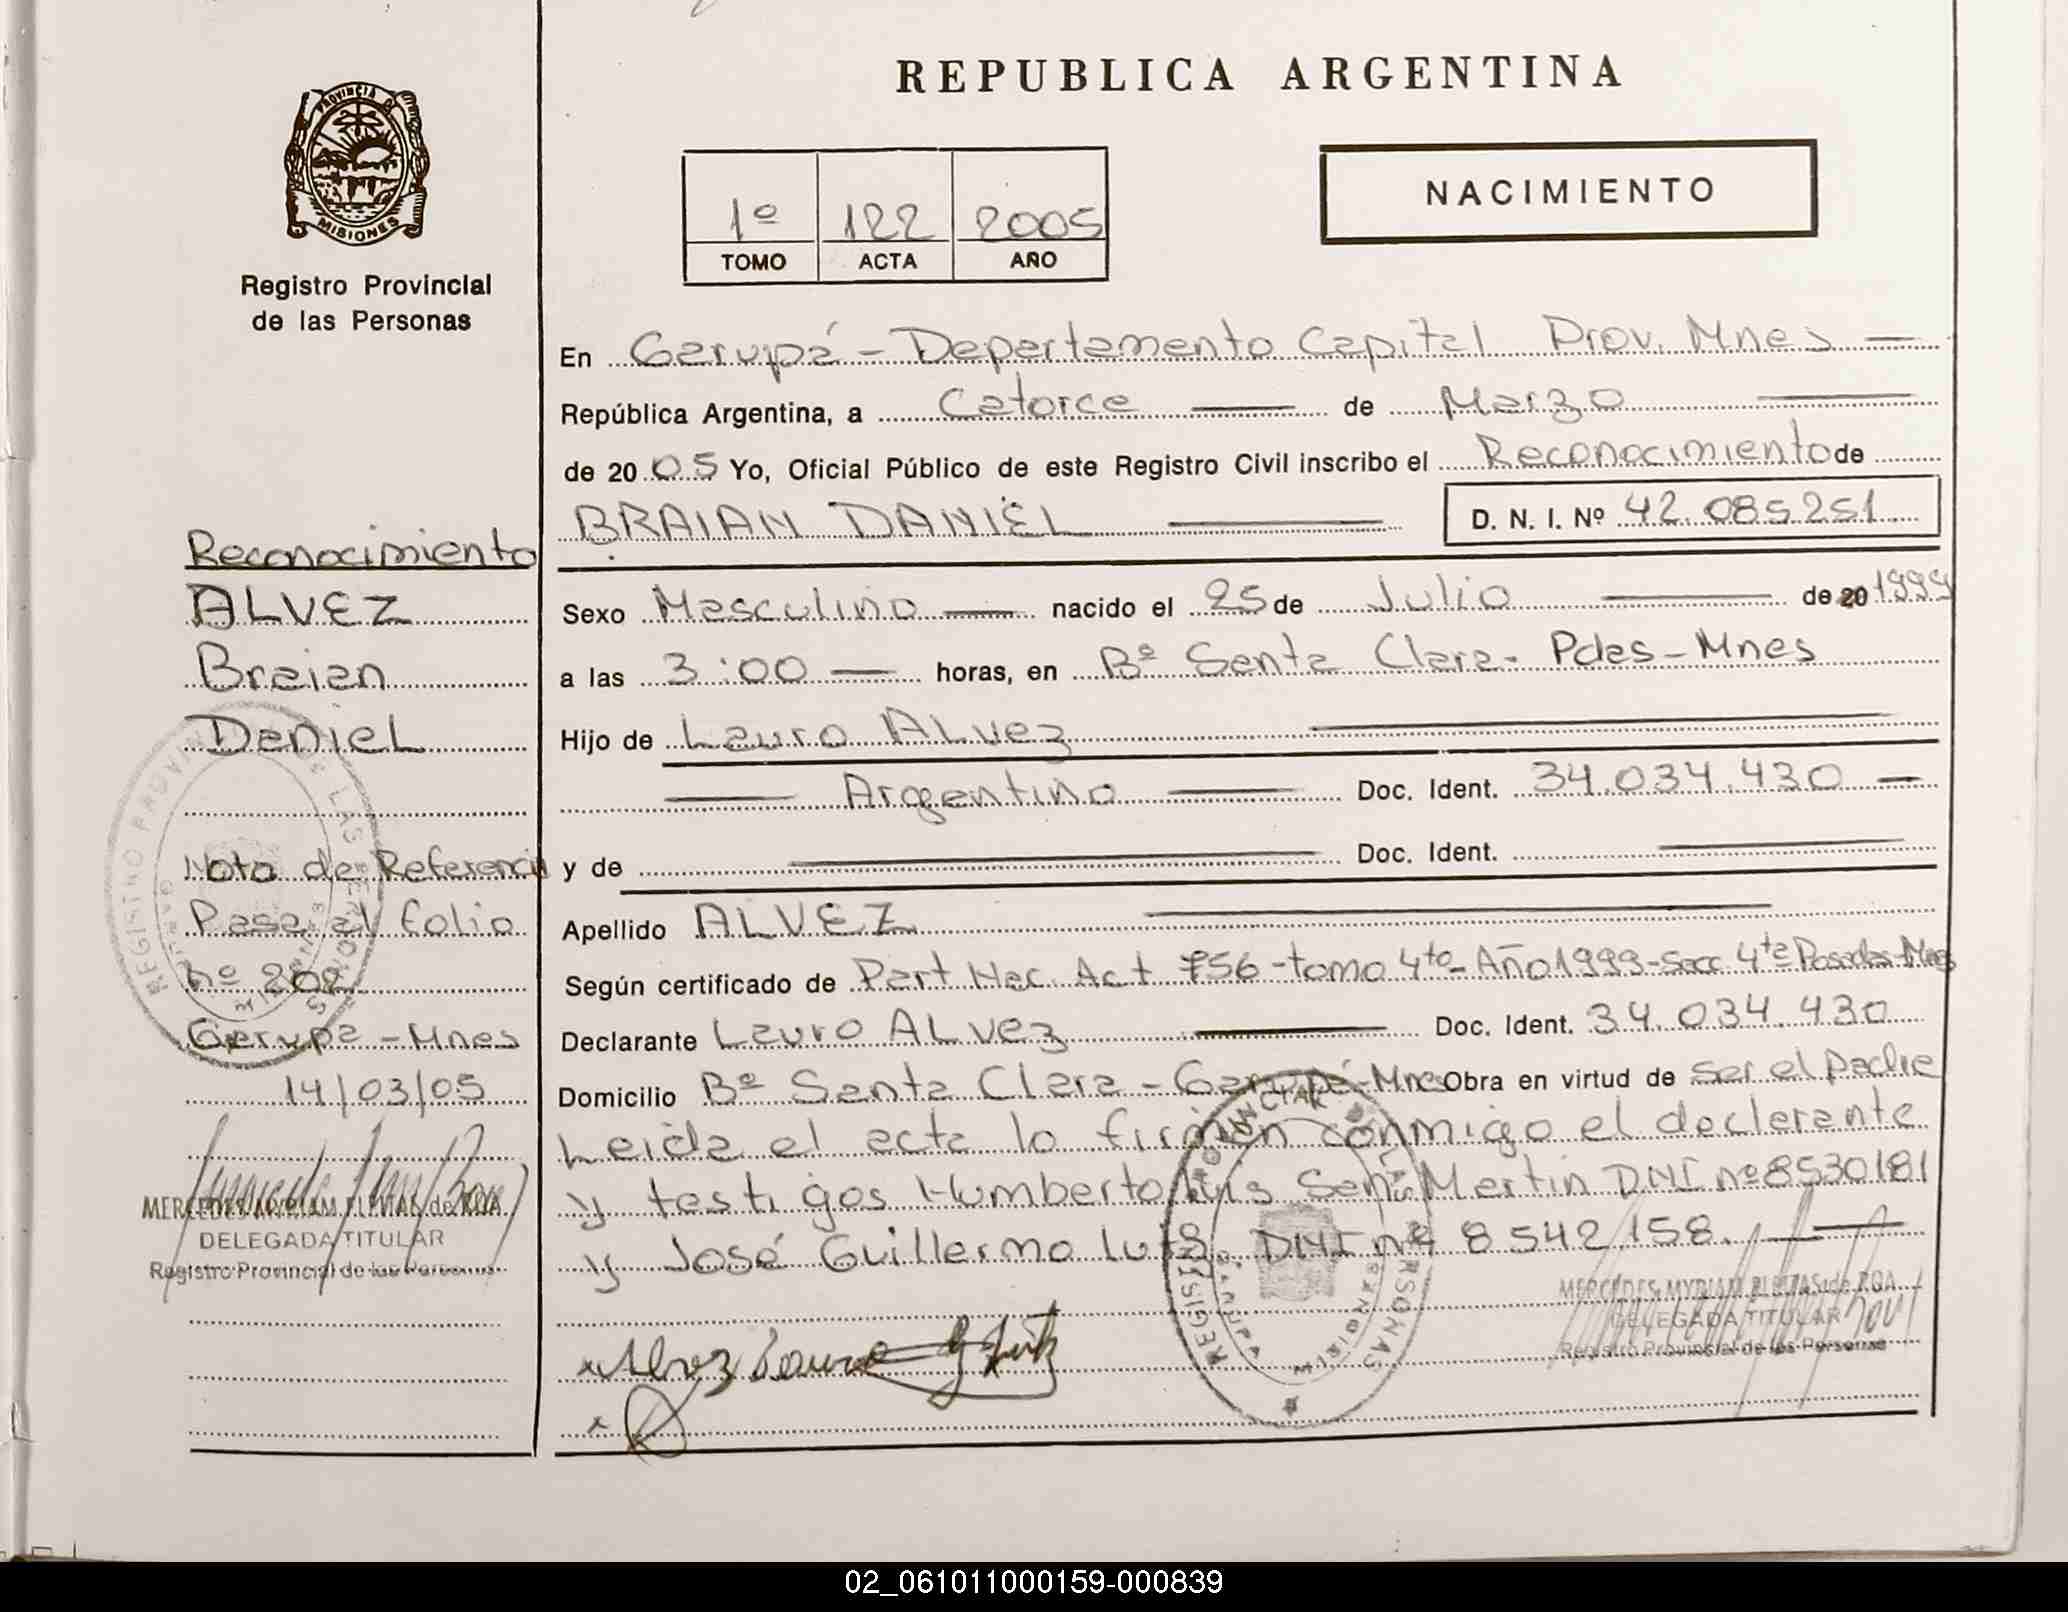 REPUBLICA ARGENTINA
PROVINCIA DE
MISIONES
Registro Provincial
de las Personas
NACIMIENTO
1º 122 2005
TOMO ACTA AÑO
En Garupá - Departamento Capital Prov. Mnes
República Argentina, a Catorce de Marzo
de 20 05 Yo, Oficial Público de este Registro Civil inscribo el Reconocimiento de
BRAIAN DANIEL D. N. I. Nº 42.085251
Sexo Masculino nacido el 25 de Julio de 20 1999
a las 3:00 horas, en Bº Santa Clara - Pdas - Mnes
Hijo de Lauro ALvez
Argentino Doc. Ident. 34.034.430
y de Doc. Ident.
Apellido ALVEZ
Según certificado de Part Nac. Act 756 - tomo 4to - Año 1999 - Secc 4ta Posadas - Mnes
Declarante Lauro ALvez Doc. Ident. 34.034.430
Domicilio Bº Santa Clara - Garupá - Mnes Obra en virtud de ser el padre
Leida el acta lo firman conmigo el declarante
y testigos Humberto Luis San Martin DNI nº 8530181
y José Guillermo Luis. DNI nº 8542158.
Alvez Lauro
MERCEDES MYRIAM PLETZAS de ROA
DELEGADA TITULAR
Registro Provincial de las Personas
Reconocimiento
ALVEZ
Braian
Daniel
Nota de Referencia
Pasa al folio
nº 202
Garupa - Mnes
14/03/05
DELEGADA TITULAR
Registro Provincial de las Personas
REGISTRO PROVINCIAL DE LAS PERSONAS
GARUPA
MISIONES
02_061011000159-000839